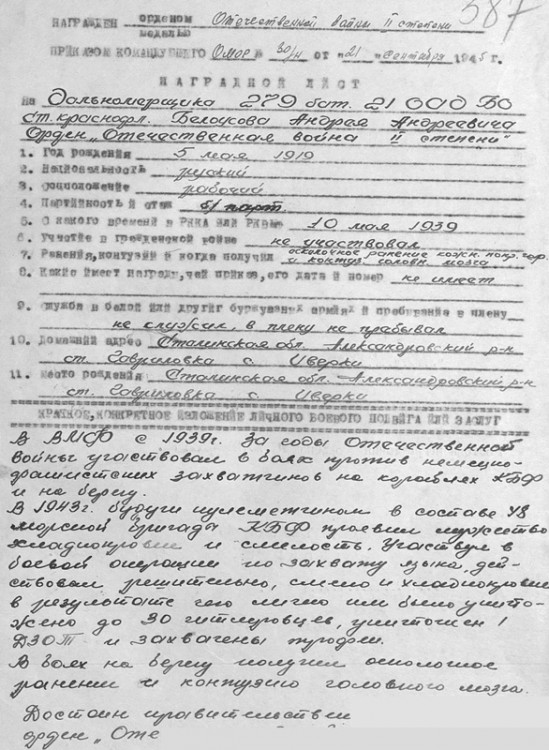 587
НАГРАЖДЕН орденом Отечественной войны II степени
медалью
ПРИКАЗОМ КОМАНДУЮЩЕГО № 30/н от "21" сентября 1945 г.
НАГРАДНОЙ ЛИСТ
На Дальномерщика 279 бат. 21 ОАД БО
ст. краснофл. Белоусова Андрея Андреевича
Орден „Отечественная война II степени"
1. Год рождения 5 мая 1919
2. Национальность русский
3. Соцположение рабочий
4. Партийность и стаж б/парт.
5. С какого времени в РККА или РКВМФ 10 мая 1939
6. Участие в гражданской войне не участвовал
7. Ранения, контузии и когда получил осколочное ранение
и контуз. головн. мозга
8. Какие имеет награды, чей приказ, его дата и номер не имеет
9. Служба в белой или других буржуазных армиях и пребывания в плену
не служил, в плену не прабывал
10. Домашний адрес Сталинская обл. Александровский р-н
ст. Гавриловка с.
11. Место рождения Сталинская обл. Александровский р-н
ст. Гавриловка с.
КРАТКОЕ, КОНКРЕТНОЕ ИЗЛОЖЕНИЕ ЛИЧНОГО БОЕВОГО ПОДВИГА ИЛИ ЗАСЛУГ
В ВМФ с 1939г. За годы Отечественной
войны участвовал в боях против немецко-
фашистских захватчиков на кораблях КБФ
и на берегу.
В 1943г. будучи пулеметчиком в составе 48
морской бригады КБФ проявил мужество
хладнокровие и смелость. Участвуя в
боевой операции по захвату языка, дей-
ствовал решительно, смело и хладнокровно
в результате чего лично им было уничто-
жено до 30 гитлеровцев, уничтожен 1
ДЗОТ и захвачены трофеи.
В боях на берегу получил осколочное
ранение и контузию головного мозга.
Достоин правительствен
орден „Оте